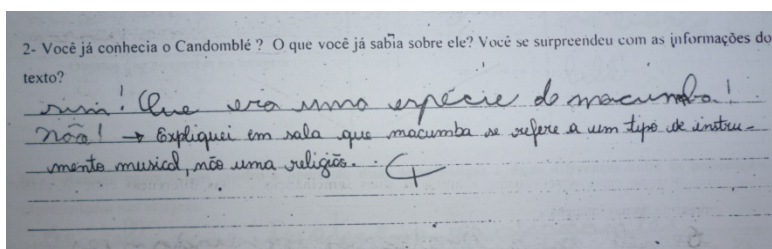 2- Você já conhecia o Candomblé ? O que você já sabia sobre ele? Você se surpreendeu com as informações do
texto?
sim! Que era uma espécie de macumba!
Não! → Expliquei em sala que macumba se refere a um tipo de instru-
mento musical, não uma religião.